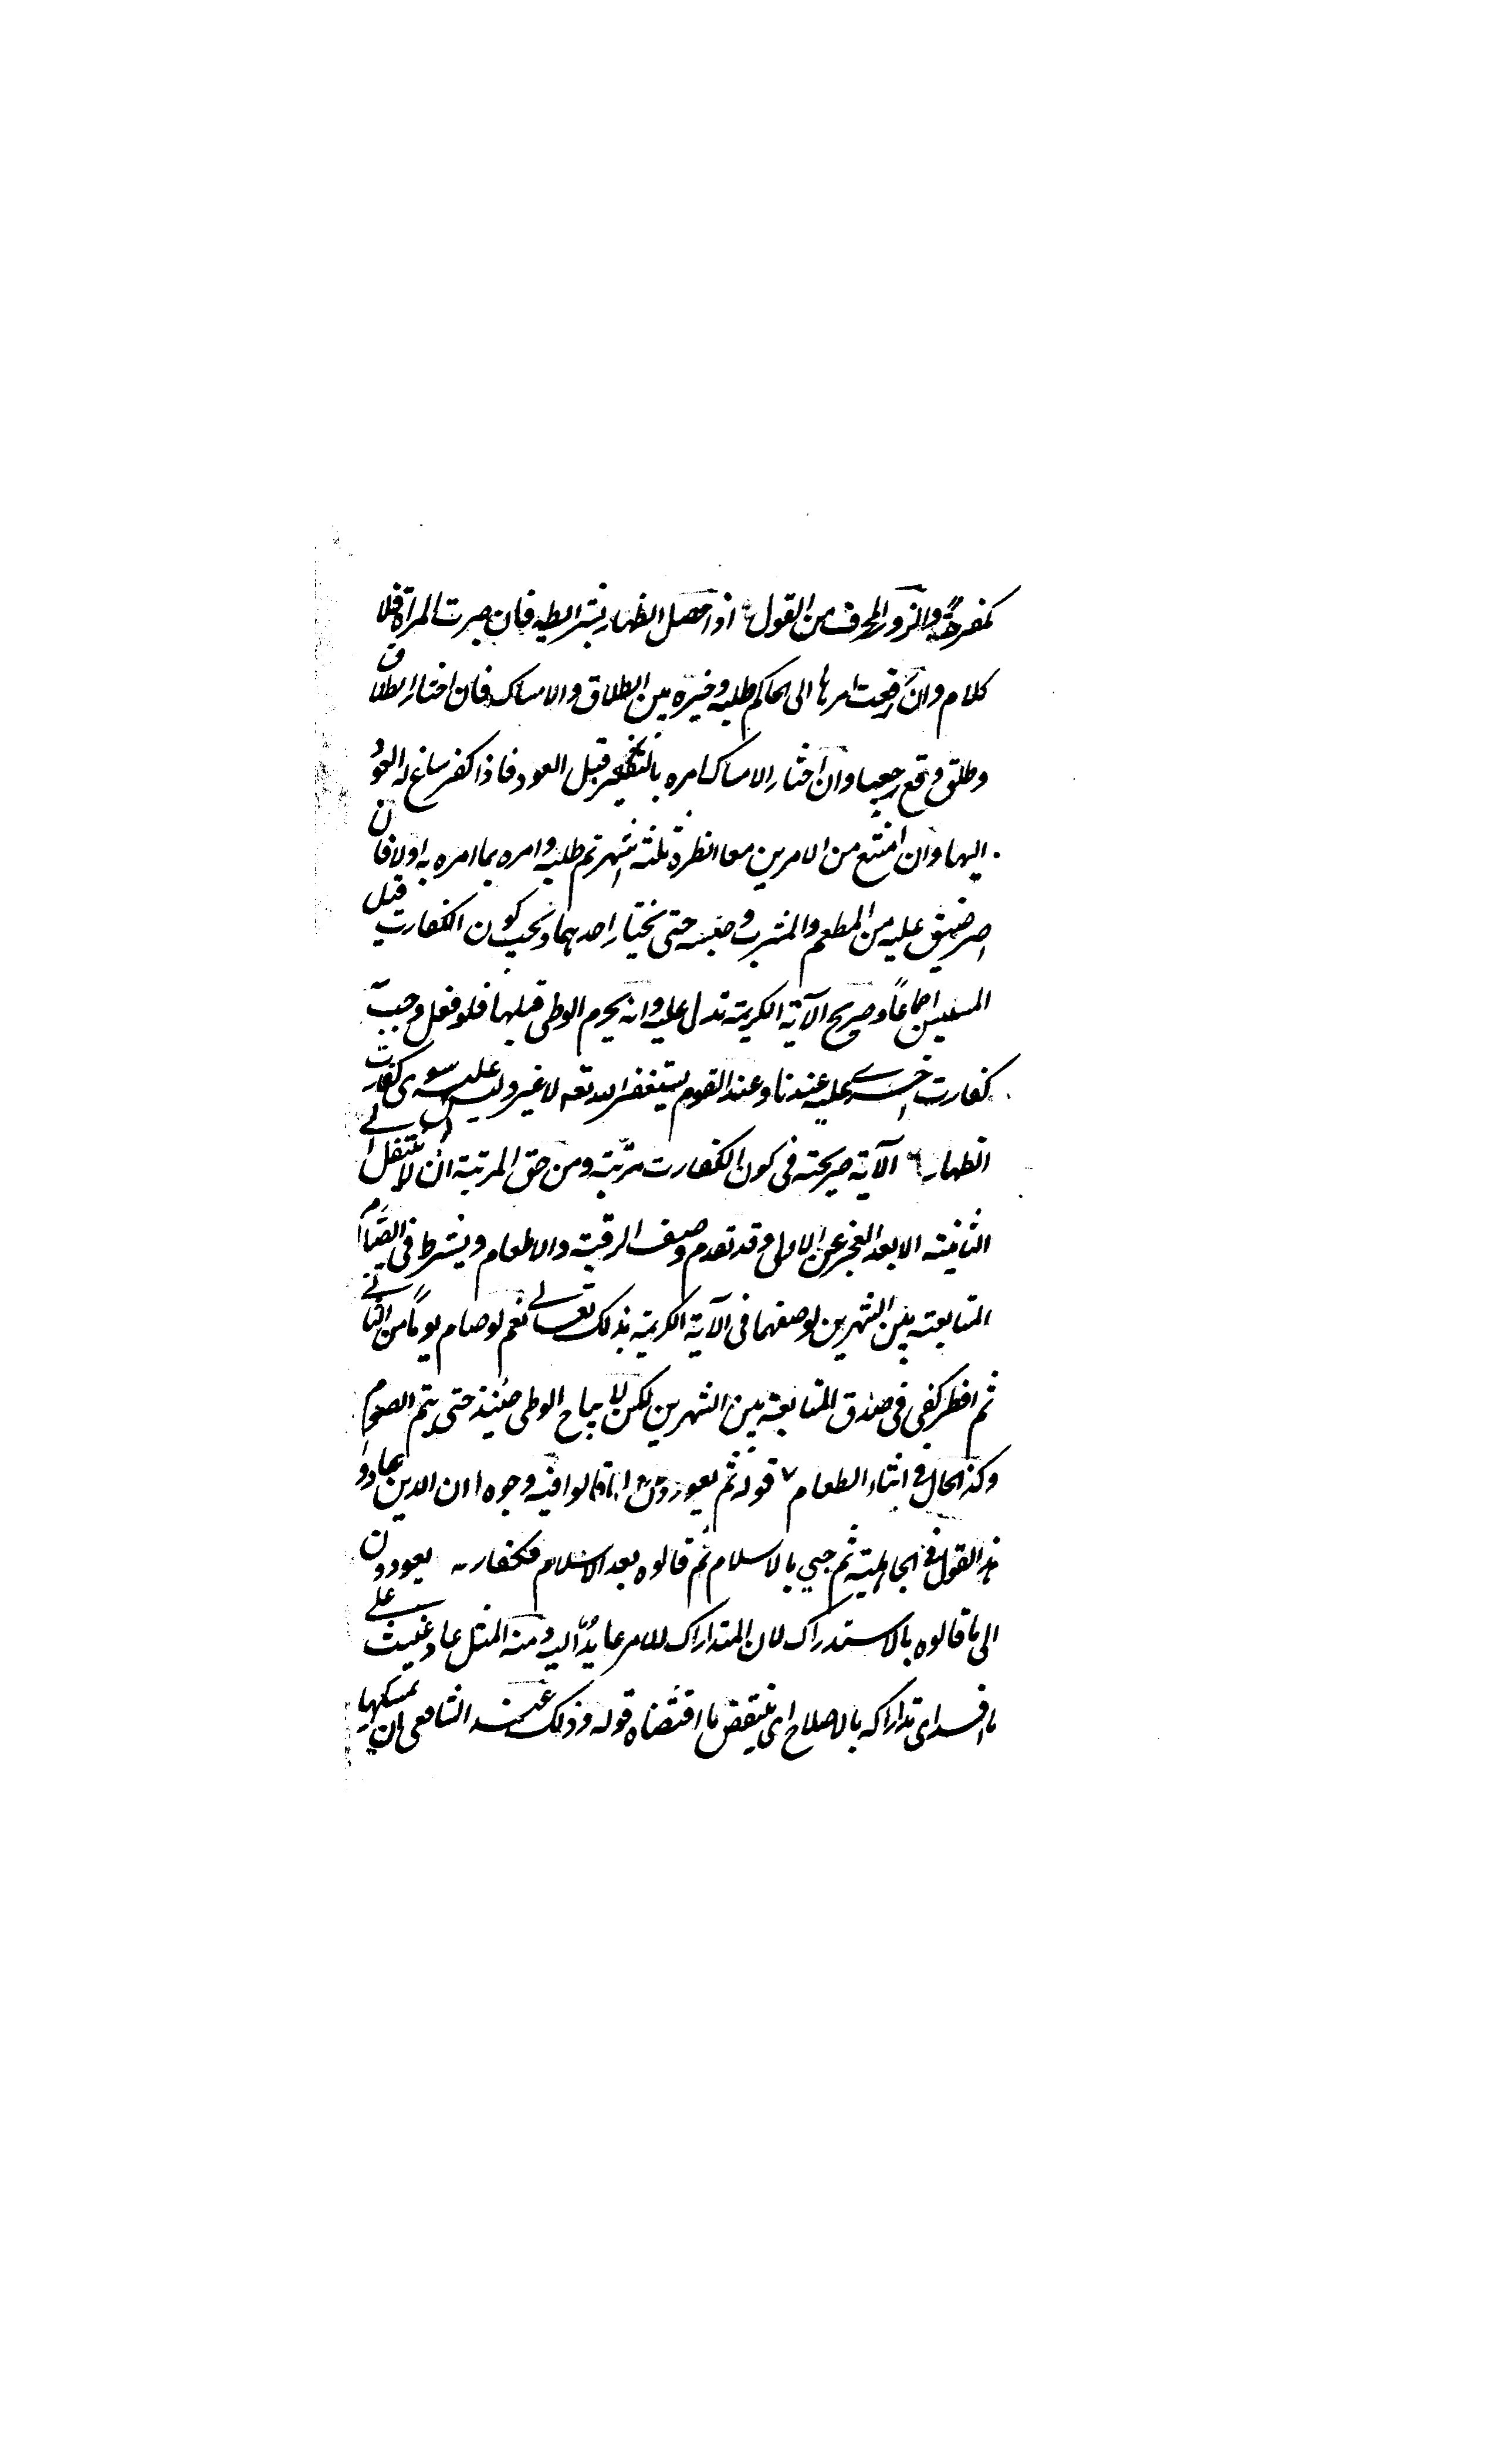 كمفرحة والزور المحرف من القول ٥ اذا حصل الظهار بشرايطه فان صبرت المراة فلا
كلام وان رفعت امرها الى الحاكم طلبه وخيره بين الطلاق والامساك فان اختار الطلاق
وطلق وقع رجعيا وان اختار الامساك امره بالتكفير قبل العود فاذا كفر ساغ له العود
اليها وان امتنع من الامرين معا انظره ثلثة اشهر ثم طلبه وامره بما امره به اولا فان
اصر ضيق عليه من المطعم والمشرب وحبسه حتى يختار احدهما ويجب كون الكفارت قبل
المسيس اجماعا وصريح الآية الكريمة تدل عليه وانه يحرم الوطى قبلها فلو فعل وجبت
كفارت اخرى عليه عندنا وعند القوم يستغفر الله تعه لا غير وليس عليه سوى كفارت
الظهار ٦ الآية صريحة فى كون الكفارت مرتبة ومن حق المرتبة ان لا ينتقل الى
الثانية الا بعد العجز عن الاولى وقد تقدم وصف الرقبة والاطعام ويشترط فى الصيام
المتابعة بين الشهرين لوصفهما فى الآية الكريمة بذلك تعالى نعم لو صام يوما من الثانى
ثم افطر كفى فى صدق المتابعة بين الشهرين لكن لا يباح الوطى حينئذ حتى يتم الصوم
وكذا الحال فى اثناء الطعام ٧ قوله ثم يعودون لما قالوا فيه وجوه ا ان الذين عادوا
هذا القول فى الجاهلية ثم جبي بالاسلام ثم قالوه بعد الاسلام فكفارت يعودون
الى ما قالوه بالاستدراك لان المتدارك للامر عايد اليه ومنه المثل عاد غيث على
ما افسد اى تداركه بالاصلاح اى ينتقض ما اقتضاه قوله وذلك عند الشافعى بان يمسكها